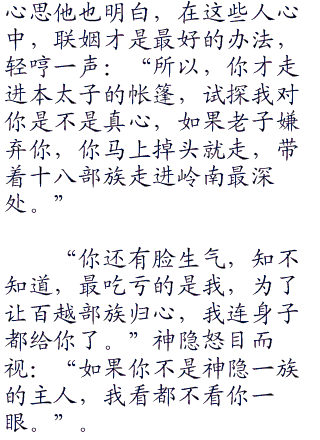 心思他也明白，在这些人心
中，联姻才是最好的办法，
轻哼一声：“所以，你才走
进本太子的帐篷，试探我对
你是不是真心，如果老子嫌
弃你，你马上掉头就走，带
着十八部族走进岭南最深
处。”
“你还有脸生气，知不
知道，最吃亏的是我，为了
让百越部族归心，我连身子
都给你了。”神隐怒目而
视：“如果你不是神隐一族
的主人，我看都不看你一
眼。”。